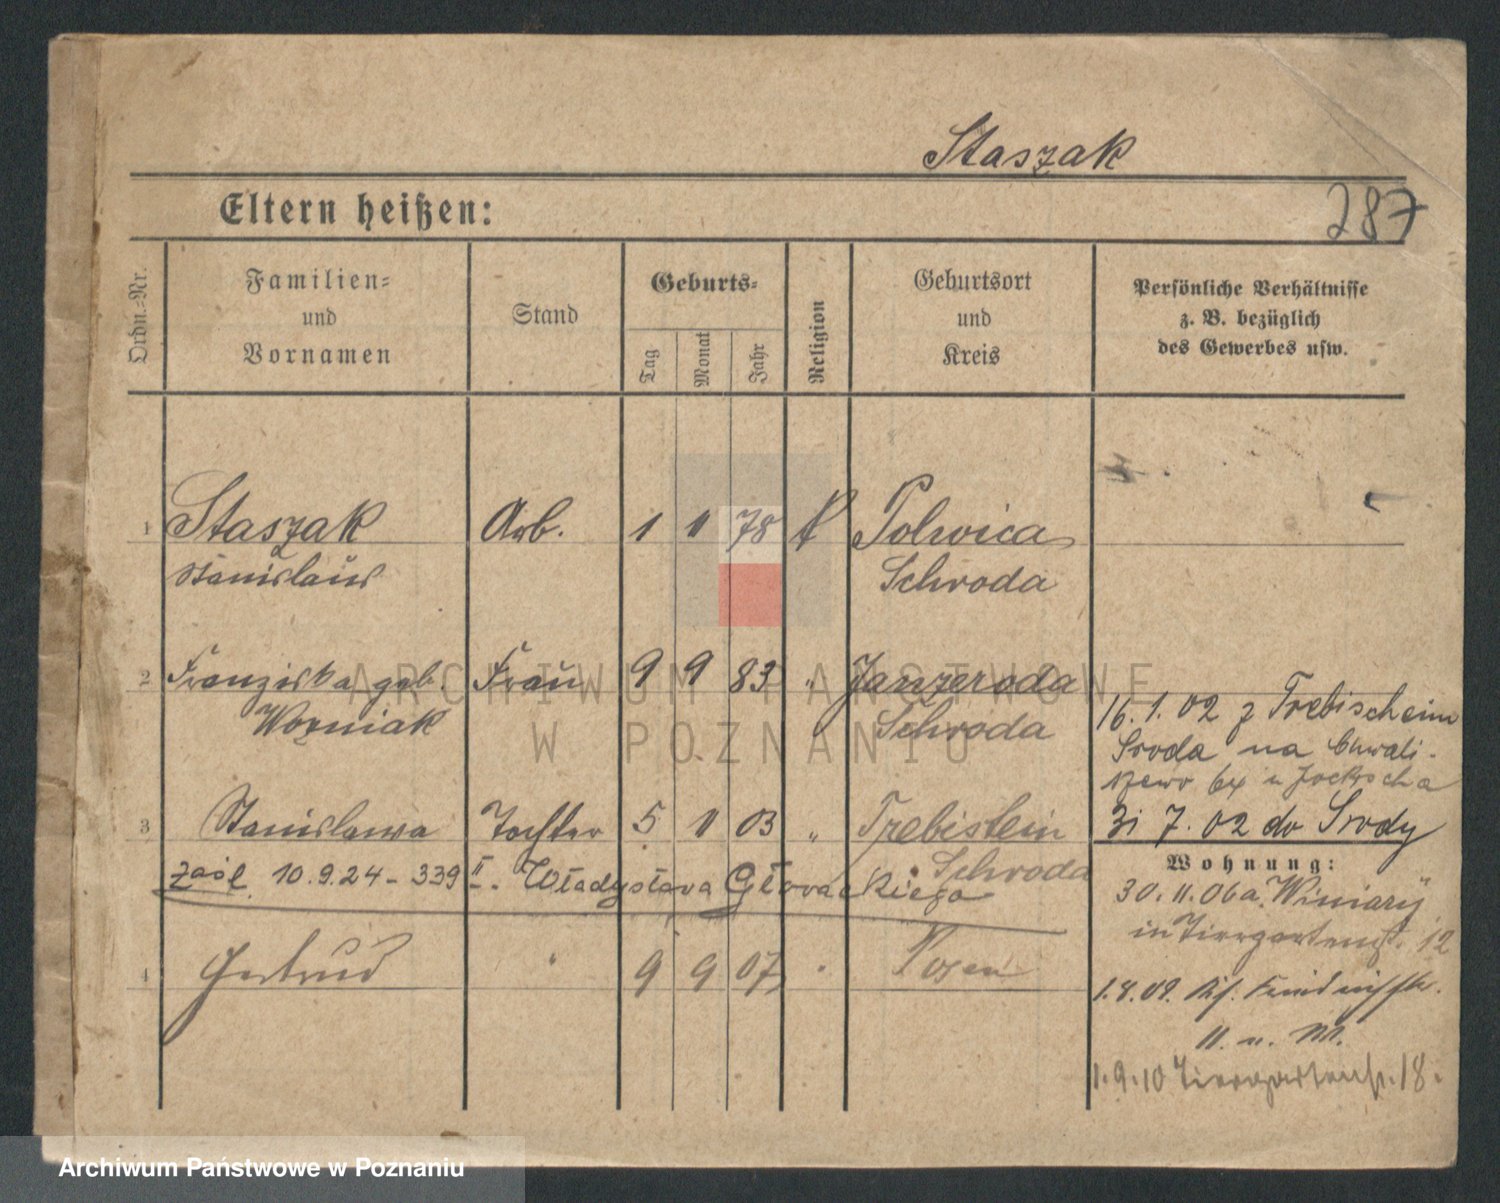 Staszak
Eltern heißen:
287
Ordn.-Nr.
Familien-
und
Vornamen
Stand
Geburts-
Tag
Monat
Jahr
Religion
Geburtsort
und
Kreis
Persönliche Verhältnisse
z. B. bezüglich
des Gewerbes usw.
1 Staszak Arb. 1 11 78 k Polwica
Stanislaus Schroda
2 Franziska geb. Frau 9 9 83 " Janzeroda
Woźniak Schroda
16.1.02 z Trebischeim
Sroda na Chwali-
szewo 64 u
3 Stanislawa Tochter 5 11 03 " Trebislein
Schroda
31 7.02 do Srody
zaśl. 10.9.24 - 339 II. Władysława Głowackiego
Wohnung:
30.11.06 a. Winiary
in Tiergartenst. 12
4 Gertrud " 9 9 07 " Posen
1.8.09.
11. u. M.
1.9.10 Tiergartenstr. 18.
ARCHIWUM PAŃSTWOWE
W POZNANIU
Archiwum Państwowe w Poznaniu